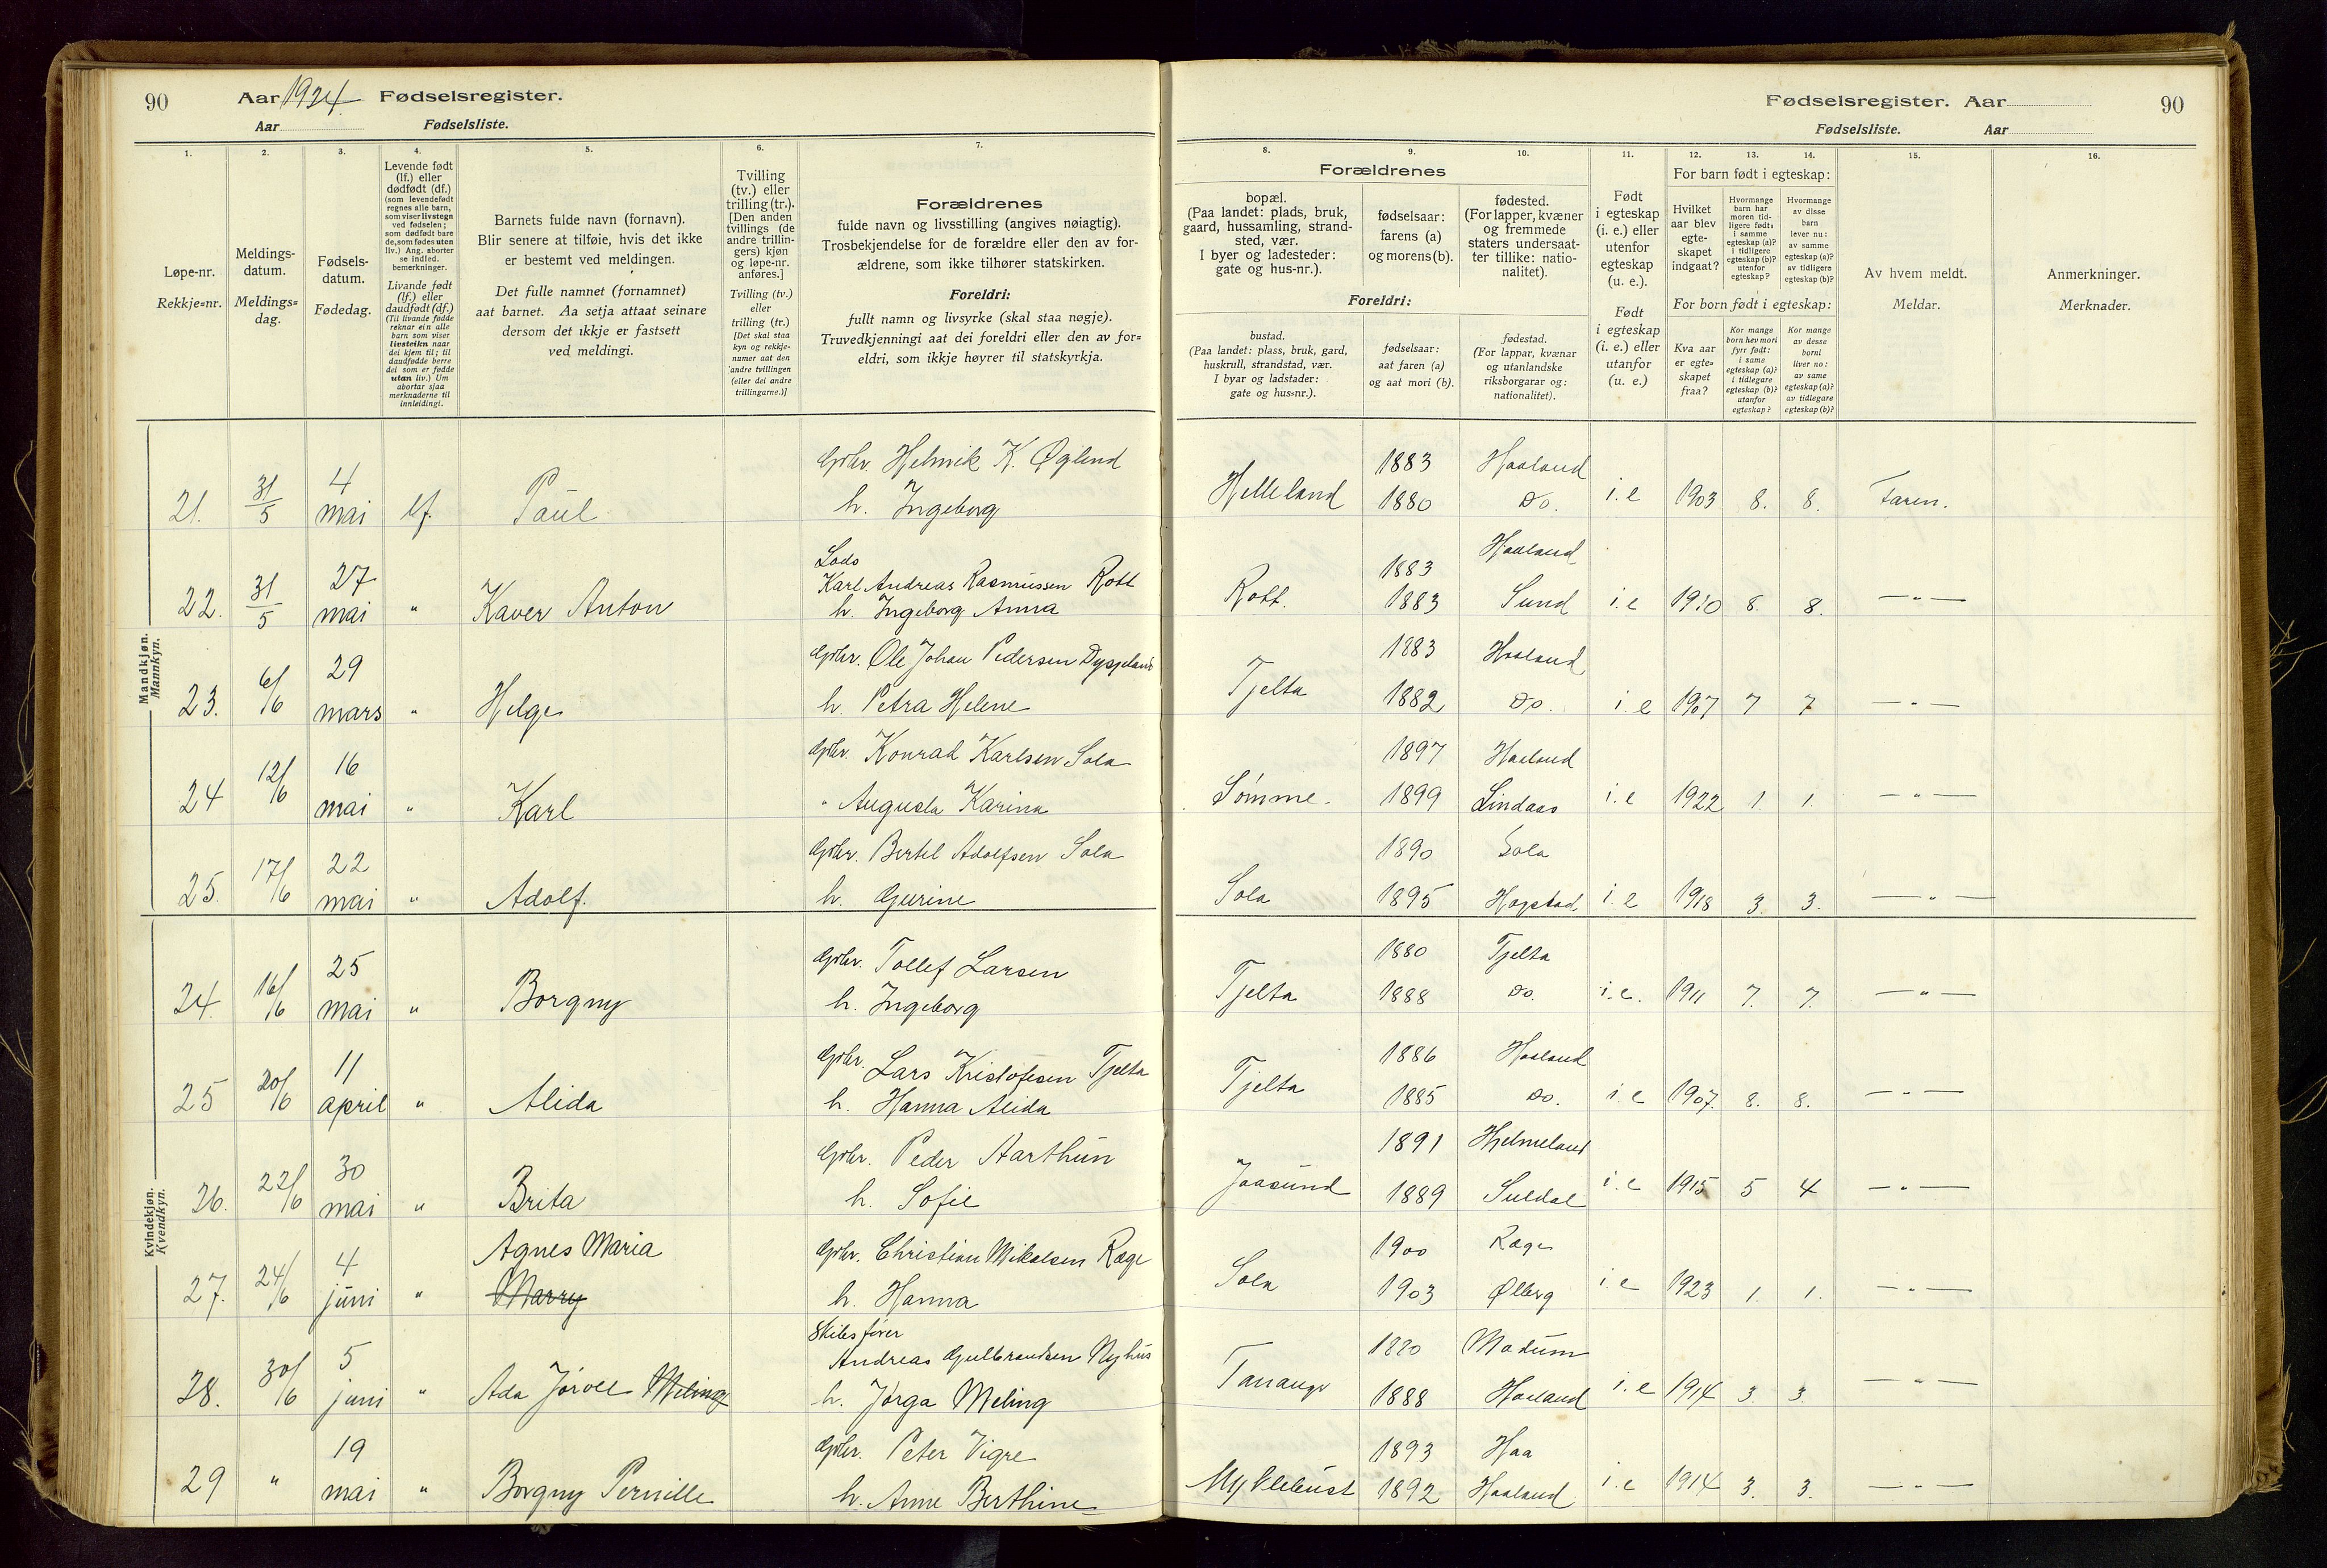 90
Aar 1924. Fødselsregister.
Aar Fødselsliste.
Fødselsregister. Aar
90
Fødselsliste. Aar
1.
2.
3.
4.
5.
6.
7.
8.
9.
10.
11.
12.
13.
14.
15.
16.
Løpe-nr.
Rekkje=nr.
Meldings-
datum.
Meldings=
dag.
Fødsels-
datum.
Fødedag.
Levende født
(lf.) eller
dødfødt (df.)
(som levendefødt
regnes alle barn,
som viser livstegn
ved fødselen;
som dødfødt bare
de, som fødes uten
liv.) Ang. aborter
se indled.
bemerkninger.
Livande født
(lf.) eller
daudfødt (df.)
(Til livande fødde
reknar ein alle
barn som viser
livsteikn naar
dei kjem til; til
daudfødde berre
dei som er fødde
utan liv.) Um
abortar sjaa
merknaderne til
innleidingi.
Barnets fulde navn (fornavn).
Blir senere at tilføie, hvis det ikke
er bestemt ved meldingen.
Det fulle namnet (fornamnet)
aat barnet. Aa setja attaat seinare
dersom det ikkje er fastsett
ved meldingi.
Tvilling
(tv.) eller
trilling (tr.).
[Den anden
tvillings (de
andre trillin-
gers) kjøn
og løpe-nr.
anføres.]
Tvilling (tv.)
eller
trilling (tr.)
[Det skal staa
kyn og rekkje-
numer aat den
andre tvillingen
(eller dei andre
trillingarne.)]
Forældrenes
fulde navn og livsstilling (angives nøiagtig).
Trosbekjendelse for de forældre eller den av for-
ældrene, som ikke tilhører statskirken.
Foreldri:
fullt namn og livsyrke (skal staa nøgje).
Truvedkjenningi aat dei foreldri eller den av for=
eldri, som ikkje høyrer til statskyrkja.
Forældrenes
bopæl.
(Paa landet: plads, bruk,
gaard, hussamling, strand-
sted, vær.
I byer og ladesteder:
gate og hus-nr.).
fødselsaar:
farens (a)
og morens (b).
fødested.
(For lapper, kvæner
og fremmede
staters undersaat-
ter tillike: natio-
nalitet).
Foreldri:
bustad.
(Paa landet: plass, bruk, gard,
huskrull, strandstad, vær.
I byar og ladstader:
gate og hus=nr.).
fødselsaar:
aat faren (a)
og aat mori (b).
fødestad.
(For lappar, kvænar
og utanlandske
riksborgarar og:
nationalitet).
Født
i egteskap
(i. e.) eller
utenfor
egteskap
(u. e.).
Født
i egteskap
(i. e.) eller
utanfor
(u. e.)
For barn født i egteskap:
Hvilket
aar blev
egte-
skapet
indgaat?
Hvormange
barn har
moren tid-
ligere født:
i samme
egteskap (a)?
i tidligere
egteskap (b)?
utenfor
egteskap?
Hvormange
av disse
barn
lever nu:
av samme
egteskap (a)?
av tidligere
egteskap (b)?
For born født i egteskap:
Kva aar
er egte=
skapet
fraa?
Kor mange
born hev mori
fyrr født:
i same
egteskap (a)?
i tidlegare
egteskap (b)?
utanfor
egteskap?
Kor mange
av desse
borni
liver no:
av same
egteskap (a)?
av tidlegare
egteskap (b)?
Av hvem meldt.
Meldar.
Anmerkninger.
Merknader.
Mandkjøn.
Mannkyn.
21. 31/5 4 mai lf. Paul Gdbr. Helmik K. Øglend
h. Ingeborg Helleland 1883 1880 Haaland Do. i.e 1903 8. 8. Faren.
22. 31/5 27 mai " Kaver Anton Lods
Karl Andreas Rasmussen Rott
h. Ingeborg Anna Rott. 1883 1883 Haaland Sund i.e 1910 8. 8. — " —
23. 6/6 29 mars " Helge Gdbr. Ole Johan Pedersen Dysjeland
h. Petra Helene Tjelta 1883 1882 Haaland Do. i.e 1907 7 7 — " —
24 12/6 16 mai " Karl Gdbr. Konrad Karlsen Sola
" Augusta Karina Sømme. 1897 1899 Haaland Lindaas i.e 1922 1. 1. — " —
25. 17/6 22 mai " Adolf. Gdbr. Bertel Adolfsen Sola
h. Gurine Sola 1890 1895 Sola Hogstad i.e 1918 3. 3. — " —
Kvindekjøn.
Kvendkyn.
24. 16/6 25 mai " Borgny Gdbr. Tollef Larsen
h. Ingeborg Tjelta 1880 1888 Tjelta Do. i.e. 1911 7. 7. — " —
25 20/6 11 april " Alida Gdbr. Lars Kristofesen Tjelta
h. Hanna Alida Tjelta 1886 1885 Haaland Do. i.e 1907. 8. 8. — " —
26. 22/6 30 mai " Brita Gdbr. Peder Aarthun
h. Sofie Jaasund 1891 1889 Hjelmeland Suldal i.e 1915 5 4 — " —
27. 24/6 4 juni " Agnes Maria
Marry Gdbr. Christian Mikalsen Ræge
h. Hanna Sola 1900 1903 Ræge Ølberg i.e 1923 1. 1. — " —
28. 30/6 5 juni " Ada Jorvee Meling Skibsfører
Andreas Gulbrandsen Nyhus
h. Jørga Meling Tananger 1880 1888 Modum Haaland i.e 1914 3. 3. — " —
29 " 19 mai " Borgny Pernille Gdbr. Peter Vigre
h. Anne Berthine Myklebust 1893 1892 Haa Haaland i.e 1914 3. 3. — " —